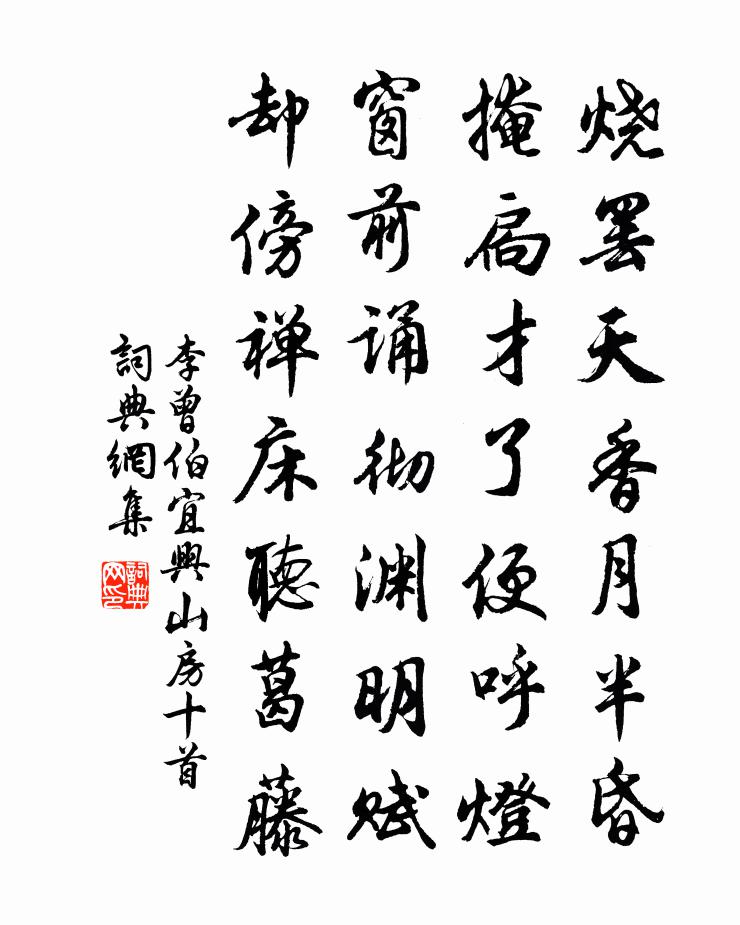 烧罢天香月半昏
掩扃才了便呼燈
窗前诵彻渊明赋
却傍禅床聽葛藤
李曾伯宜興山房十首
詞典網集
詞典网印